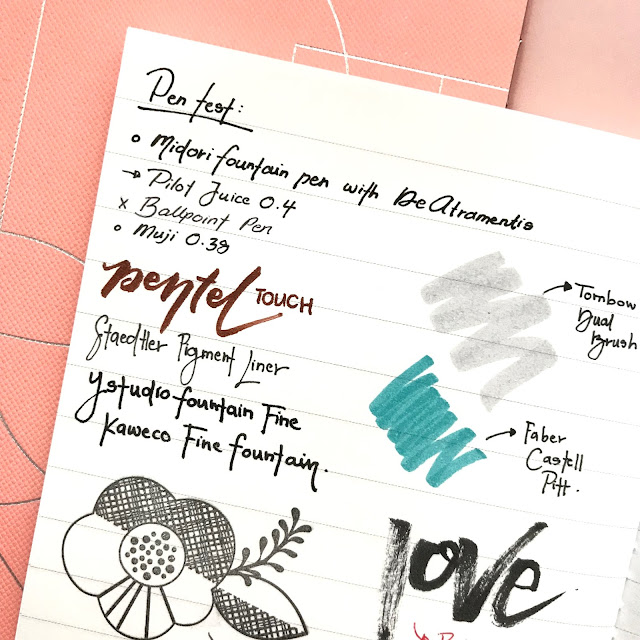 Pen test:
o Midori fountain pen with De Atramentis
→ Pilot Juice 0.4
x Ballpoint Pen
o Muji 0.38
pentel TOUCH
Staedtler Pigment Liner
Ystudio fountain Fine
Kaweco Fine fountain.
→ Tombow
Dual
Brush
→ Faber
Castell
Pitt.
love